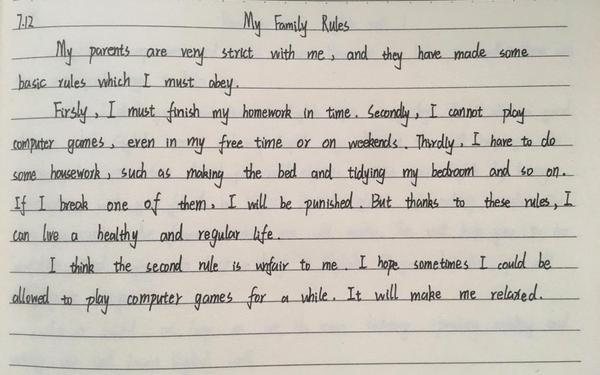 7.12 My Family Rules
My parents are very strict with me, and they have made some
basic rules which I must obey.
Firsly, I must finish my homework in time. Secondly, I cannot play
computer games, even in my free time or on weekends. Thirdly, I have to do
some housework, such as making the bed and tidying my bedroom and so on.
If I break one of them, I will be punished. But thanks to these rules, I
can live a healthy and regular life.
I think the second rule is unfair to me. I hope sometimes I could be
allowed to play computer games for a while. It will make me relaxed.